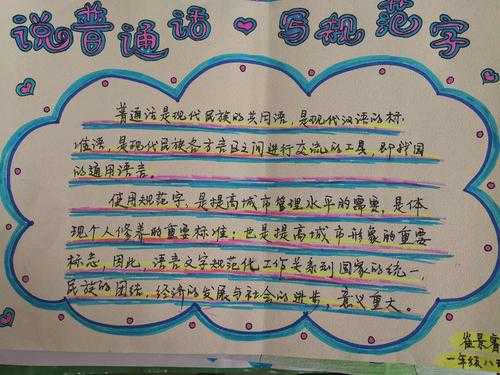 说普通话 写规范字
普通话是现代民族的共同语，是现代汉语的标
准语，是现代民族各方言区之间进行交流的工具，即我国
的通用语言。
使用规范字，是提高城市管理水平的需要，是体
现个人修养的重要标准；也是提高城市形象的重要
标志，因此，语言文字规范化工作是系到国家的统一，
民族的团结，经济的发展与社会的进步，意义重大。
崔景
一年级八